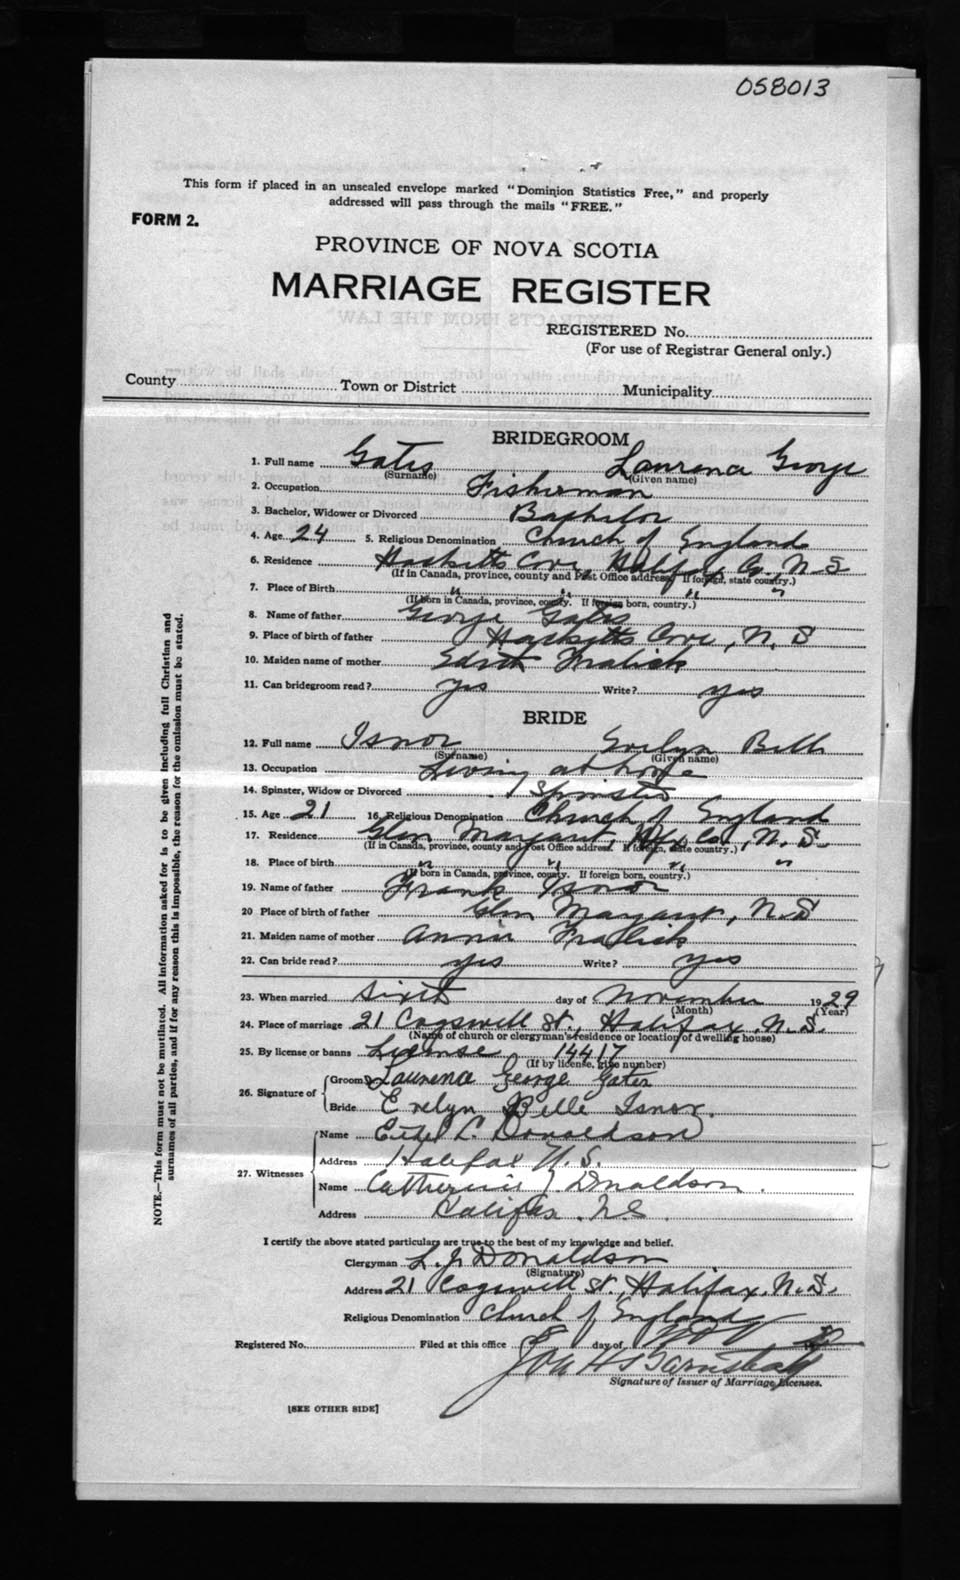 058013
This form if placed in an unsealed envelope marked "Dominion Statistics Free," and properly
addressed will pass through the mails "FREE."
FORM 2.
PROVINCE OF NOVA SCOTIA
MARRIAGE REGISTER
REGISTERED No.
(For use of Registrar General only.)
County Town or District Municipality
BRIDEGROOM
1. Full name Gates Laurence George
(Surname) (Given name)
2. Occupation Fisherman
3. Bachelor, Widower or Divorced Bachelor
4. Age 24 5. Religious Denomination Church of England
6. Residence Hacketts Cove, Halifax Co., N S
(If in Canada, province, county and Post Office address. If foreign, state country.)
7. Place of Birth " " " "
(If born in Canada, province, county. If foreign born, country.)
8. Name of father George Gates
9. Place of birth of father Hacketts Cove, N. S
10. Maiden name of mother Edith Fralick
11. Can bridegroom read? yes Write? yes
BRIDE
12. Full name Isnor Evelyn Belle
(Surname) (Given name)
13. Occupation Living at home
14. Spinster, Widow or Divorced Spinster
15. Age 21 16. Religious Denomination Church of England
17. Residence Glen Margaret, Hfx Co., N. S.
(If in Canada, province, county and Post Office address. If foreign, state country.)
18. Place of birth " " " "
(If born in Canada, province, county. If foreign born, country.)
19. Name of father Frank Isnor
20 Place of birth of father Glen Margaret, N. S
21. Maiden name of mother Annie Fralick
22. Can bride read? yes Write? yes
23. When married Sixth day of November 1929
(Month) (Year)
24. Place of marriage 21 Cogswell St., Halifax, N. S.
(Name of church or clergyman's residence or location of dwelling house)
25. By license or banns License 14417
(If by license, give number)
26. Signature of Groom Laurence George Gates
Bride Evelyn Belle Isnor.
27. Witnesses Name Ethel L. Donaldson
Address Halifax N. S.
Name Catherine J Donaldson.
Address Halifax. N.S.
I certify the above stated particulars are true to the best of my knowledge and belief.
Clergyman L. J. Donaldson
(Signature)
Address 21 Cogswell St., Halifax, N. S.
Religious Denomination Church of England
Registered No. Filed at this office 8 day of Nov
Signature of Issuer of Marriage Licenses.
[SEE OTHER SIDE]
NOTE.—This form must not be mutilated. All information asked for is to be given including full Christian and
surnames of all parties, and if for any reason this is impossible, the reason for the omission must be stated.